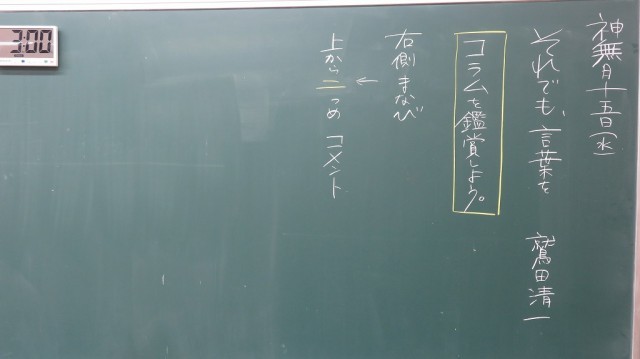 神無月十五日(水)
それでも、言葉を 鷲田清一
コラムを鑑賞しよう。
右側まなび
←
上から二つめ コメント
3:00